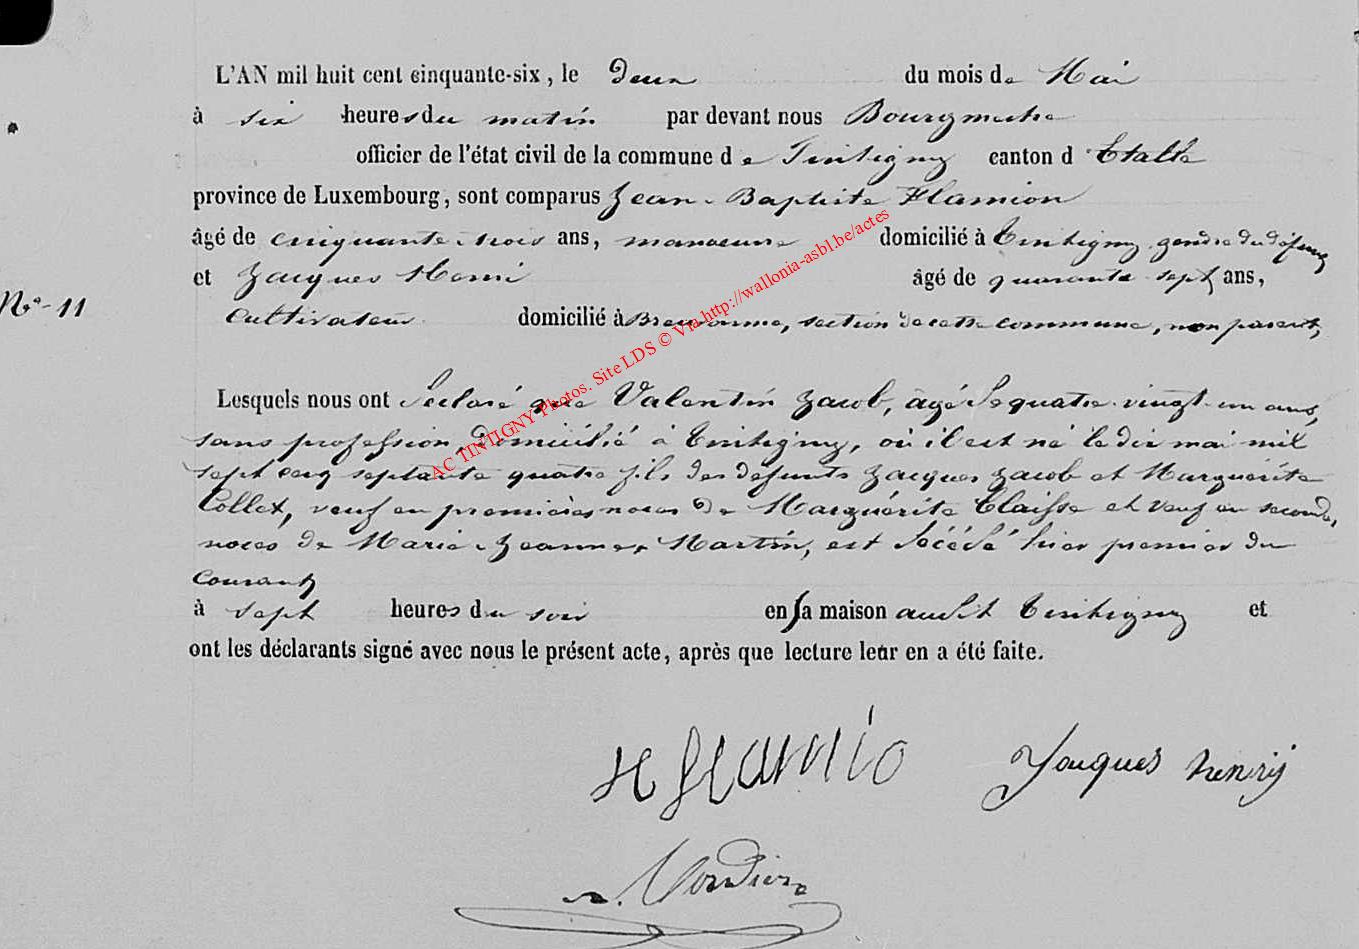 L'AN mil huit cent cinquante-six, le deux du mois de Mai
à six heures du matin par devant nous Bourgmestre
officier de l'état civil de la commune de Tintigny canton d'Etalle
province de Luxembourg, sont comparus Jean-Baptiste Flamion
âgé de cinquante-trois ans, manoeuvre domicilié à Tintigny, gendre du défunt
et Jacques Henri âgé de quarante-sept ans,
N°-11
cultivateur domicilié à Breuvanne, section de cette commune, non parent,
Lesquels nous ont déclaré que Valentin Jacob, âgé de quatre-vingt-un ans,
sans profession, domicilié à Tintigny, où il est né le dix mai mil
sept cent septante quatre fils des défunts Jacques Jacob et Marguérite
Collet, veuf en premières noces de Marguérite Claisse et veuf en secondes
noces de Marie-Jeanne Martin, est décédé hier premier du
courant
à sept heures du soir en sa maison audit Tintigny et
ont les déclarants signé avec nous le présent acte, après que lecture leur en a été faite.
Jacques henrij
AC TINTIGNY Photos. Site LDS © Via http://wallonia-asbl.be/actes